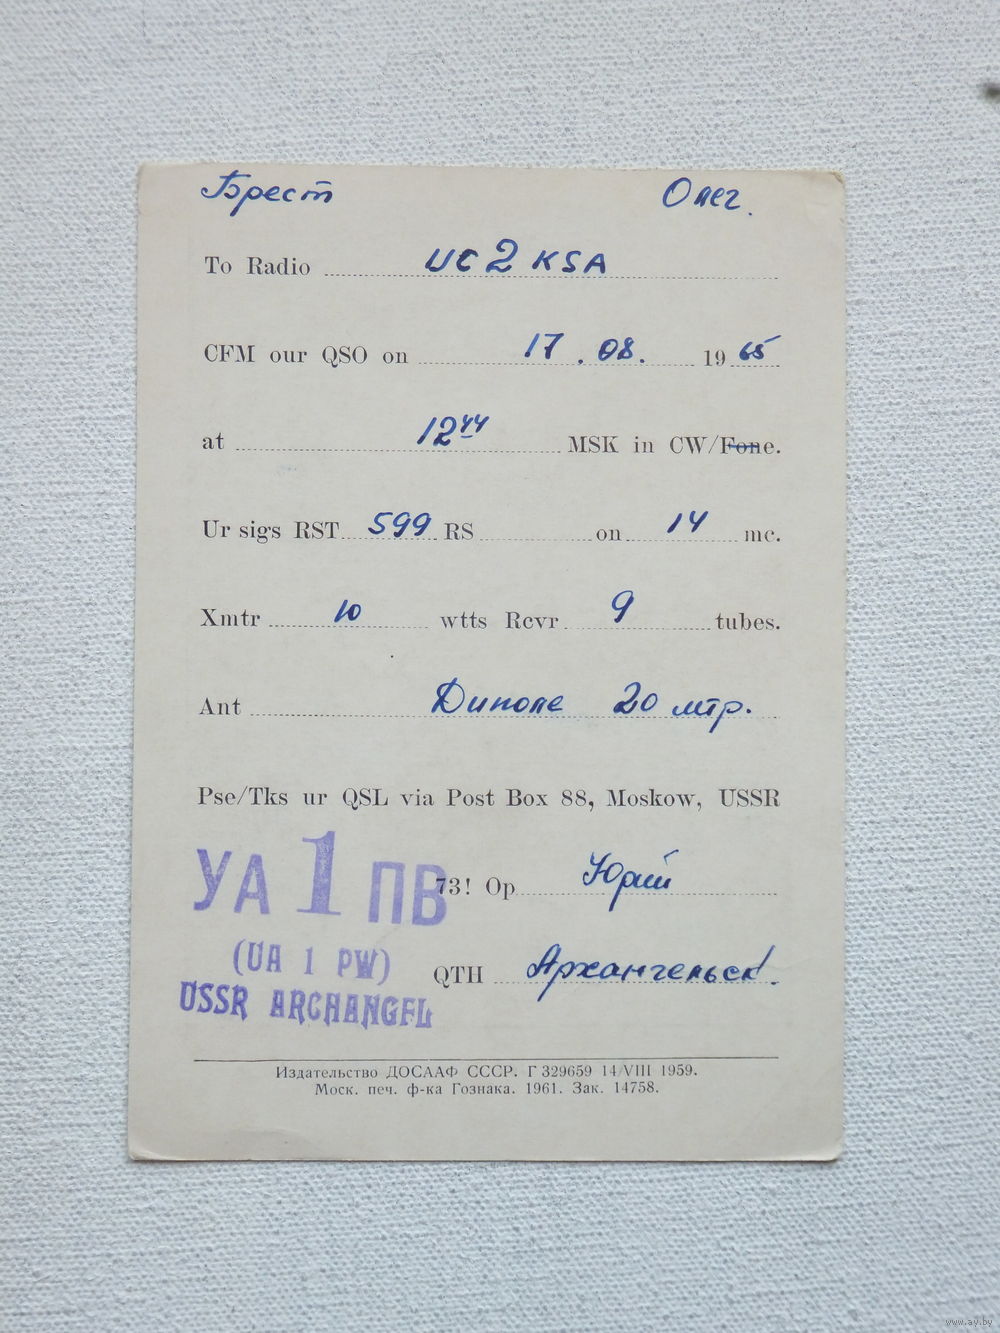 Брест Олег.
To Radio UC2KSA
CFM our QSO on 17.08. 1965
at 12 44 MSK in CW/Fone.
Ur sigs RST 599 RS on 14 mc.
Xmtr 10 wtts Rcvr 9 tubes.
Ant Диполе 20 мтр.
Pse/Tks ur QSL via Post Box 88, Moskow, USSR
УА 1 ПВ
73! Op Юрий
(UA 1 PW)
QTH Архангельск.
USSR ARCHANGEL
Издательство ДОСААФ СССР. Г 329659 14/VIII 1959.
Моск. печ. ф-ка Гознака. 1961. Зак. 14758.
www.ay.by